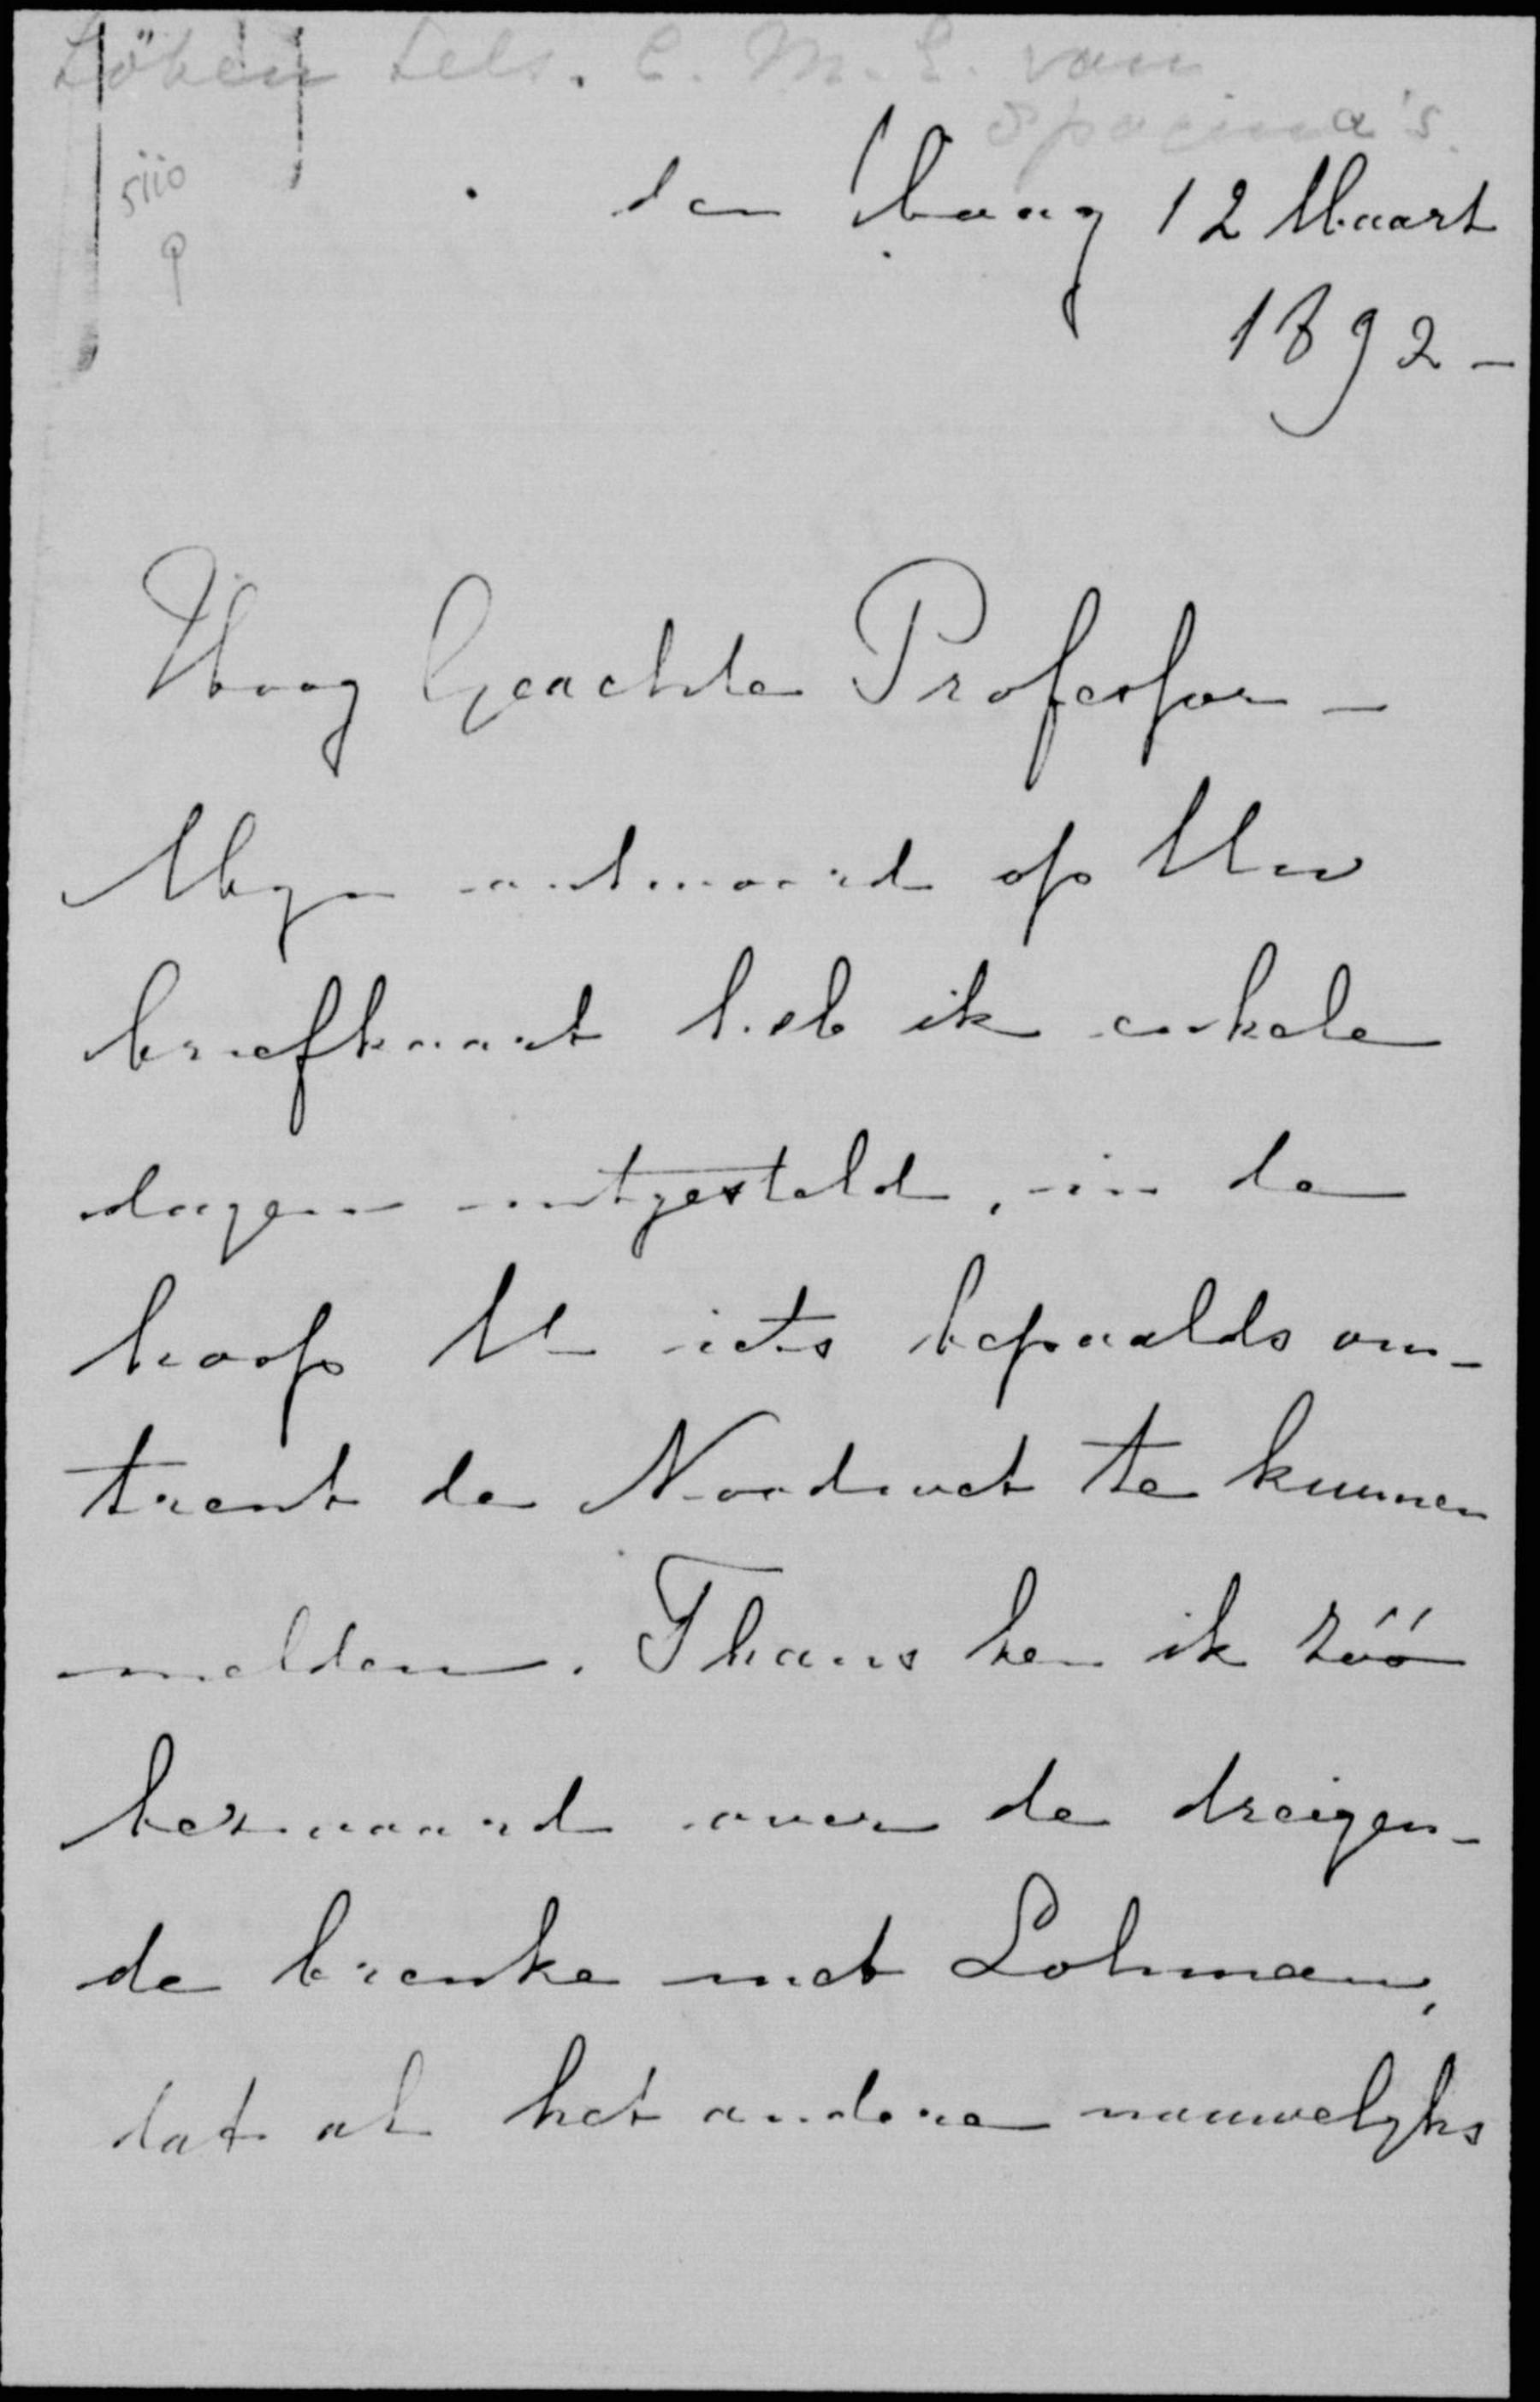 Löben Sels. E. M. E. van
5110
den Haag 12 Maart
1892 -
Hoog Geachte Professor -
Myn antwoord op Uw
briefkaart heb ik enkele
dagen uitgesteld, in de
hoop U iets bepaalds om-
trent de Noodwet te kunnen
melden. Thans ben ik zóó
bezwaard over de dreigen-
de breuke met Lohman,
dat al het andere nauwelyks